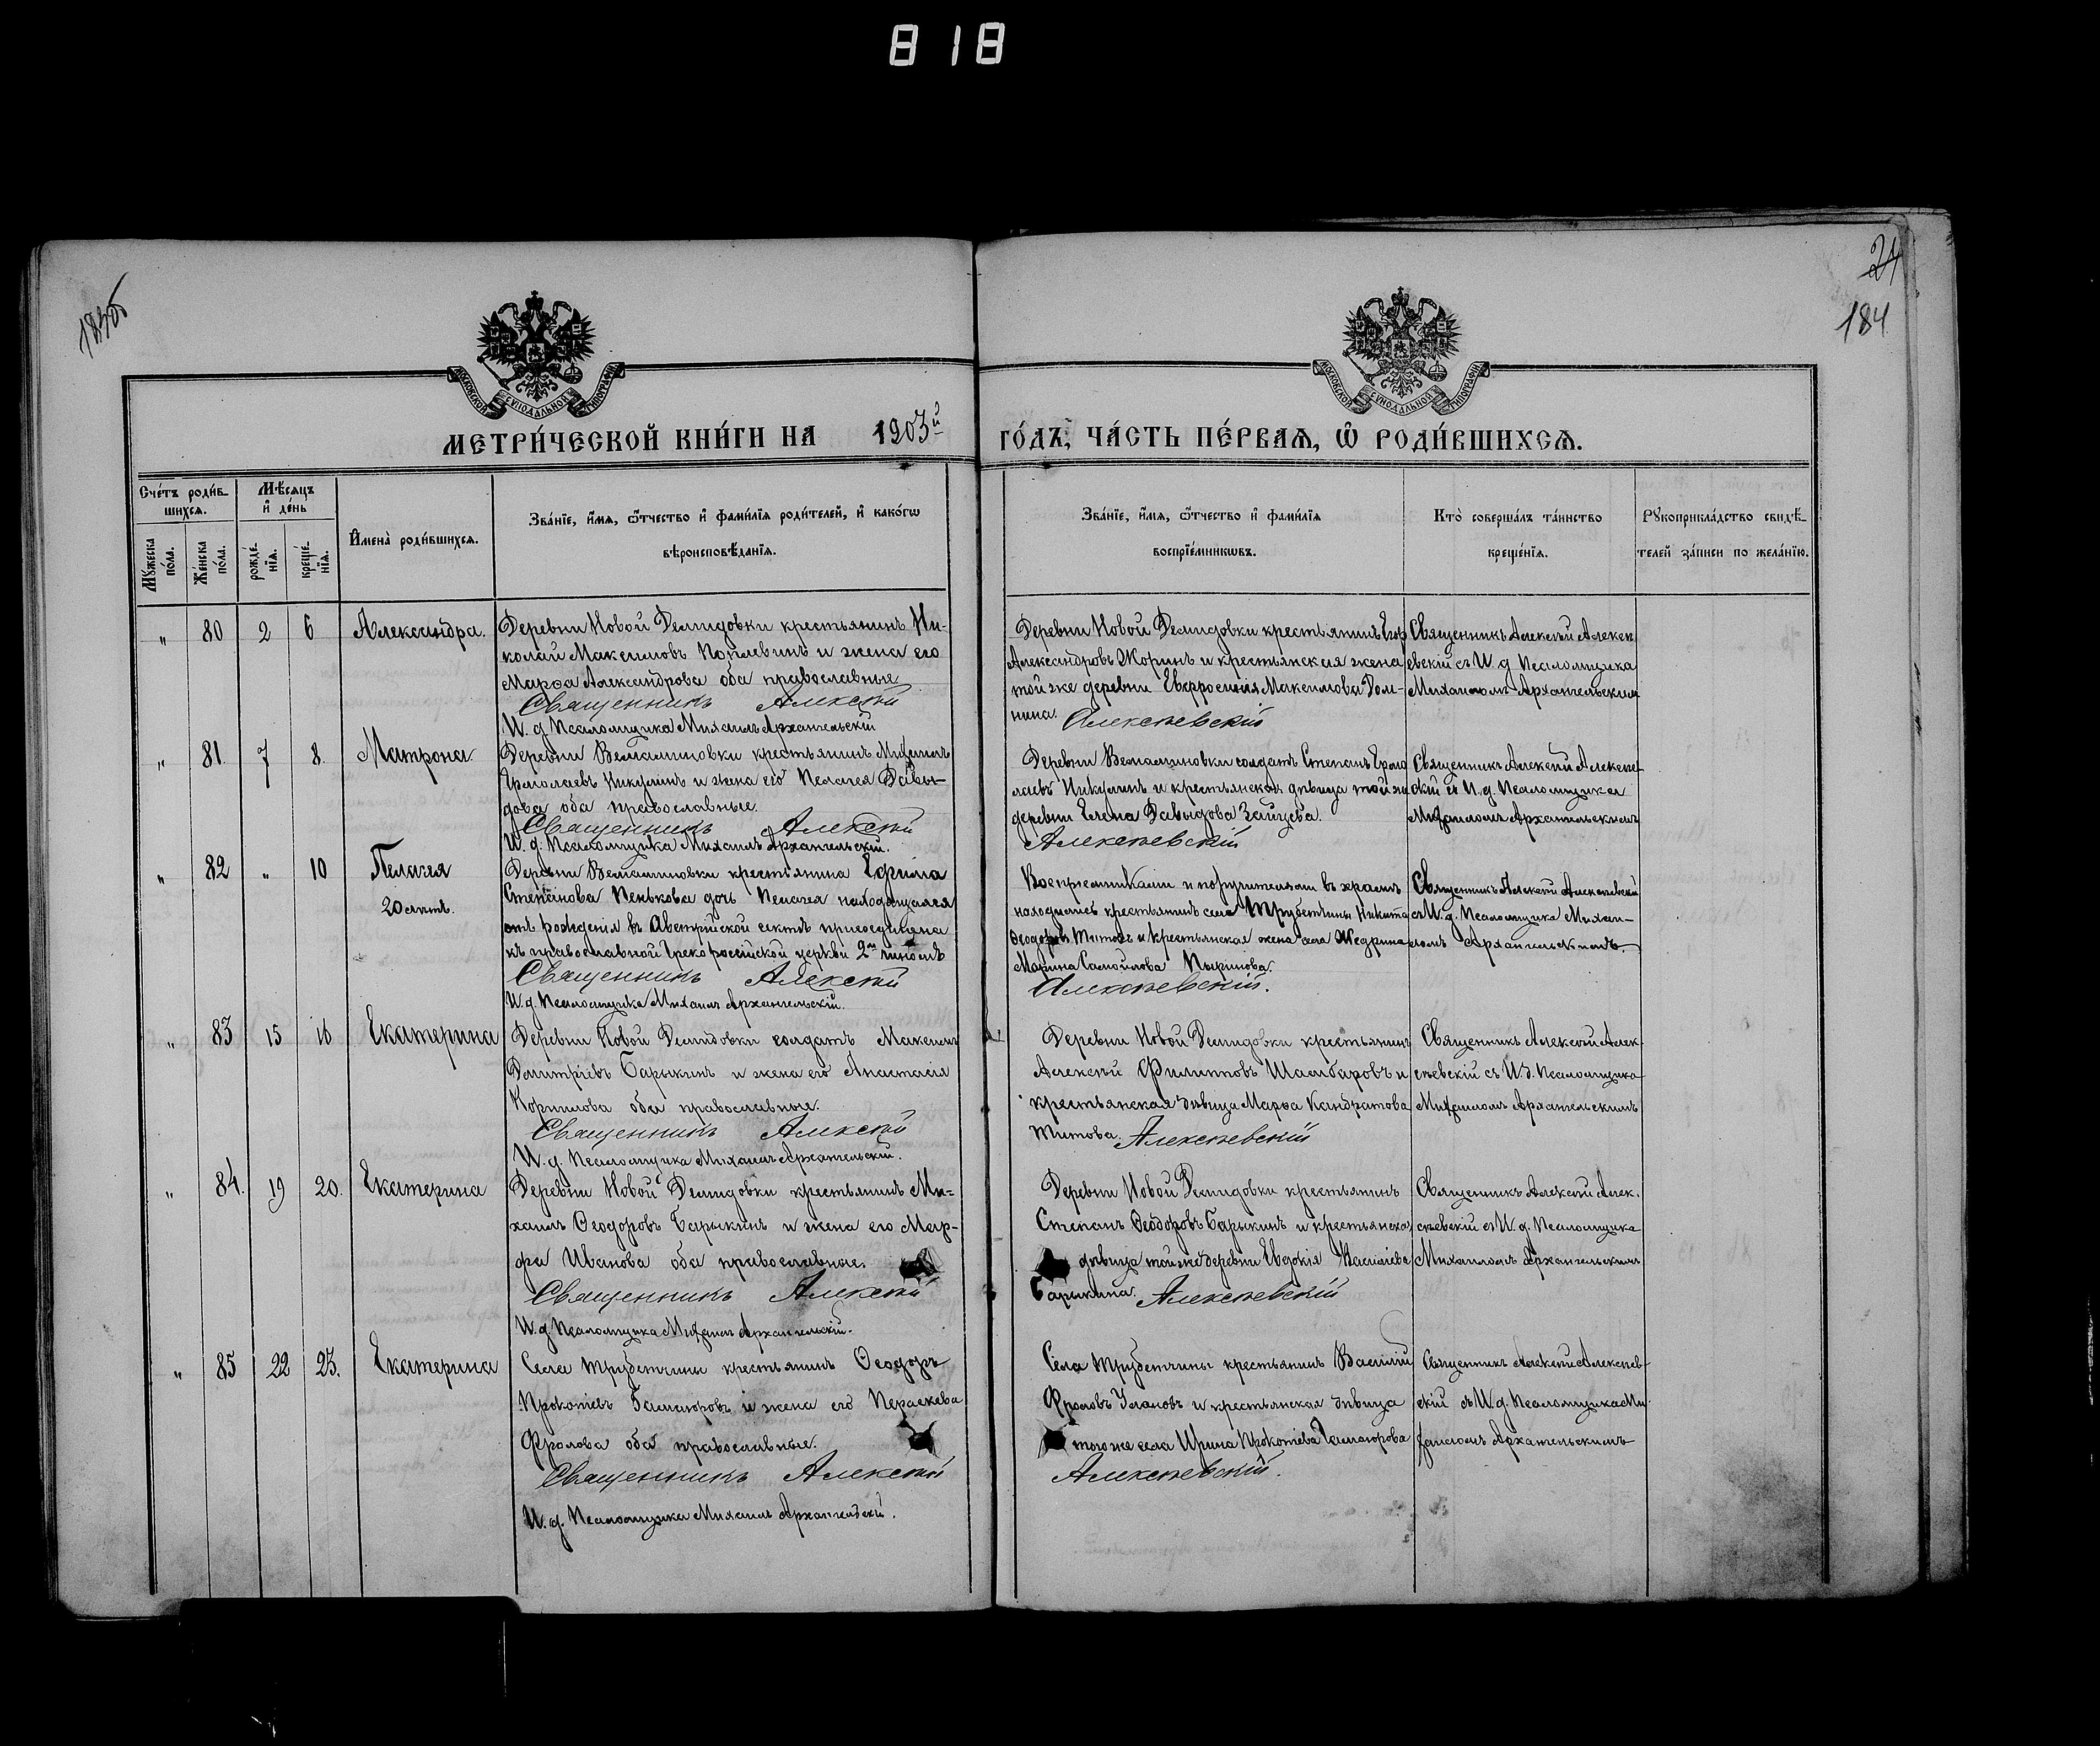 818
183об
24
184
МОСКОВСКОЙ СѴНОДАЛЬНОЙ ТИПОГРАФІИ
МОСКОВСКОЙ СѴНОДАЛЬНОЙ ТИПОГРАФІИ
МЕТРИ́ЧЕСКОЙ КНИ́ГИ НА 1903й ГО́ДЪ, ЧА́СТЬ ПЕ́РВАѦ, Ѽ РОДИ́ВШИХСѦ.
Сче́тъ роди́вшихсѧ.
Мѣ́сѧцъ и҆ де́нь
Мꙋ́жеска по́ла.
Же́нска по́ла.
рожде́нїѧ.
креще́нїѧ.
И҆мена̀ роди́вшихсѧ.
Зва́нїе, и҆́мѧ, ѻ҆́тчество и҆ фами́лїѧ роди́телей, и҆ како́гѡ вѣроисповѣ́данїѧ.
Зва́нїе, и҆́мѧ, ѻ҆́тчество и҆ фами́лїѧ воспрїе́мникѡвъ.
Кто̀ соверша́лъ та́инство креще́нїѧ.
Рꙋкоприкла́дство свидѣ́телей за́писи по жела́нїю.
" 80 2 6 Александра.
Деревни Новой Демидовки крестьянинъ Ни-
колай Максимовъ и жена его
Марѳа Александрова оба православные
Священникъ Алексѣй
И. д. Псаломщика Михаилъ Архангельскій
Деревни Новой Демидовки крестьянинъ Егор
Александровъ Жоринъ и крестьянская жена
той же деревни Евфросинія Максимова Дом-
нина. Алексѣевскій
Священникъ Алексѣй Алексѣ
евскій съ И. д. Псаломщика
Михаиломъ Архангельским
" 81. 7 8. Матрона.
Деревни крестьянинъ Михаилъ
Ермолаевъ Никулинъ и жена его Пелагея Давы-
дова оба православные.
Священникъ Алексѣй
И. д. Псаломщика Михаилъ Архангельскій.
Деревни солдатъ Степанъ Ермо
лаевъ Никулинъ и крестьянская дѣвица той же
деревни Елена Давыдова Зайцева.
Алексѣевскій
Священникъ Алексѣй Алексѣев
скій съ И. д. Псаломщика
Михаиломъ Архангельскимъ
" 82 " 10 Пелагея
20 лѣтъ.
Деревни крестьянина Ефима
Степанова Пенькова дочь Пелагея находящаяся
отъ рожденія въ Австрійской сектѣ присоединена
къ православной Грекороссійской церкви 2мъ чиномъ
Священникъ Алексѣй
И. д. Псаломщика Михаилъ Архангельскій.
Воспріемниками и поручителями въ храмѣ
находились крестьянинъ села Трубетчины Никита
Ѳеодоровъ Титовъ и крестьянская жена села Жедрина
Марина Самойлова
Алексѣевскій.
Священникъ Алексѣй Алексѣевскій
съ И. д. Псаломщика Михаи-
ломъ Архангельскимъ.
" 83 15 16 Екатерина
Деревни Новой Демидовки солдатъ Максимъ
Димитріевъ Барыкинъ и жена его Анастасія
Корнилова оба православные.
Священникъ Алексѣй
И. д. Псаломщика Михаилъ Архангельскій.
Деревни Новой Демидовки крестьянинъ
Алексѣй Филипповъ Шамбаровъ и
крестьянская дѣвица Марѳа Кандратова
Титова. Алексѣевскій
Священникъ Алексѣй Алек-
сѣевскій съ И. д. Псаломщика
Михаиломъ Архангельскимъ
" 84. 19 20. Екатерина
Деревни Новой Демидовки крестьянинъ Ми-
хаилъ Ѳеодоровъ Барыкинъ и жена его Мар-
фа Иванова оба православные.
Священникъ Алексѣй
И. д. Псаломщика Михаилъ Архангельскій.
Деревни Новой Демидовки крестьянинъ
Степанъ Ѳеодоровъ Барыкинъ и крестьянска
дѣвица той же деревни Евдокія Васильева
Барыкина. Алексѣевскій
Священникъ Алексѣй Алек.
сѣевскій съ И. д. Псаломщика
Михаиломъ Архангельскимъ
" 85 22 23. Екатерина
Села Трубетчины крестьянинъ Ѳеодоръ
Прокопіевъ и жена его Параскева
Фролова оба православные.
Священникъ Алексѣй
И. д. Псаломщика Михаилъ Архангельскій.
Села Трубетчины крестьянинъ Василій
Фроловъ Улановъ и крестьянская дѣвица
того же села Ирина Прокопіева
Алексѣевскій.
Священникъ Алексѣй Алексѣев-
скій съ И. д. Псаломщика Ми-
хаиломъ Архангельскимъ